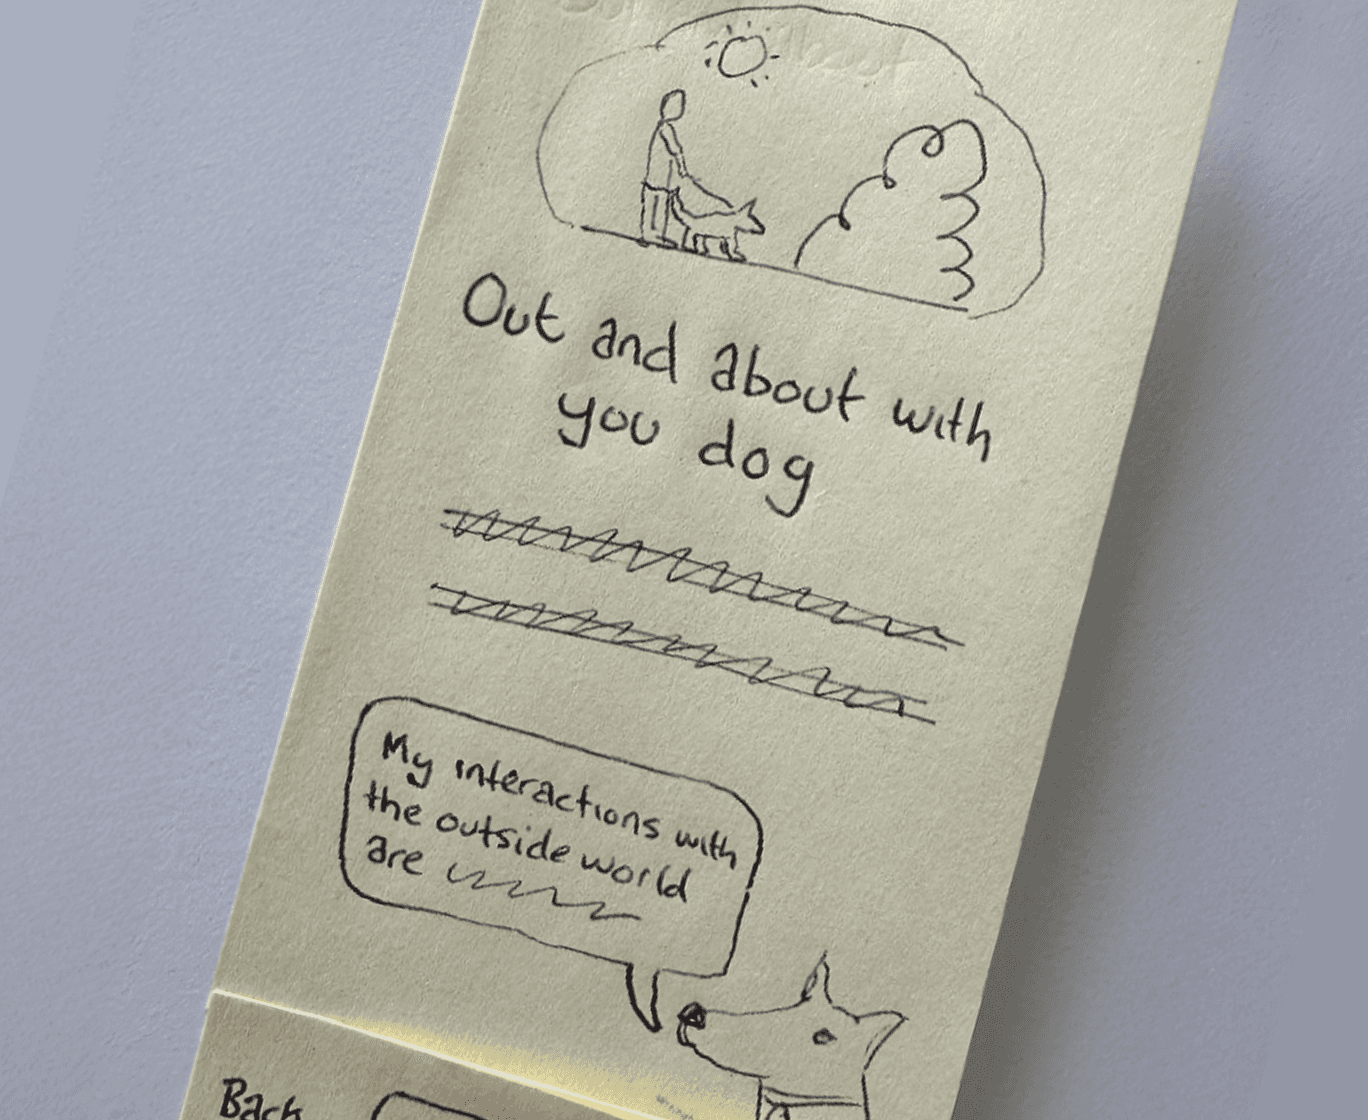 Out and about with
you dog
My interactions with
the outside world
are
Back